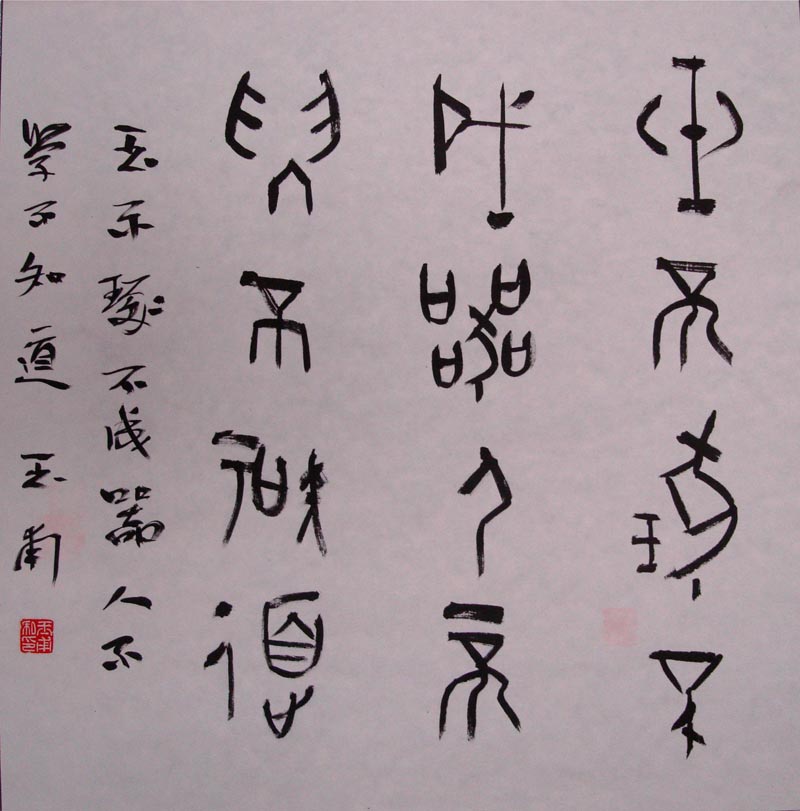 玉不琢不
成器人不
學不知道
玉不琢不成器人不
學不知道 玉甫